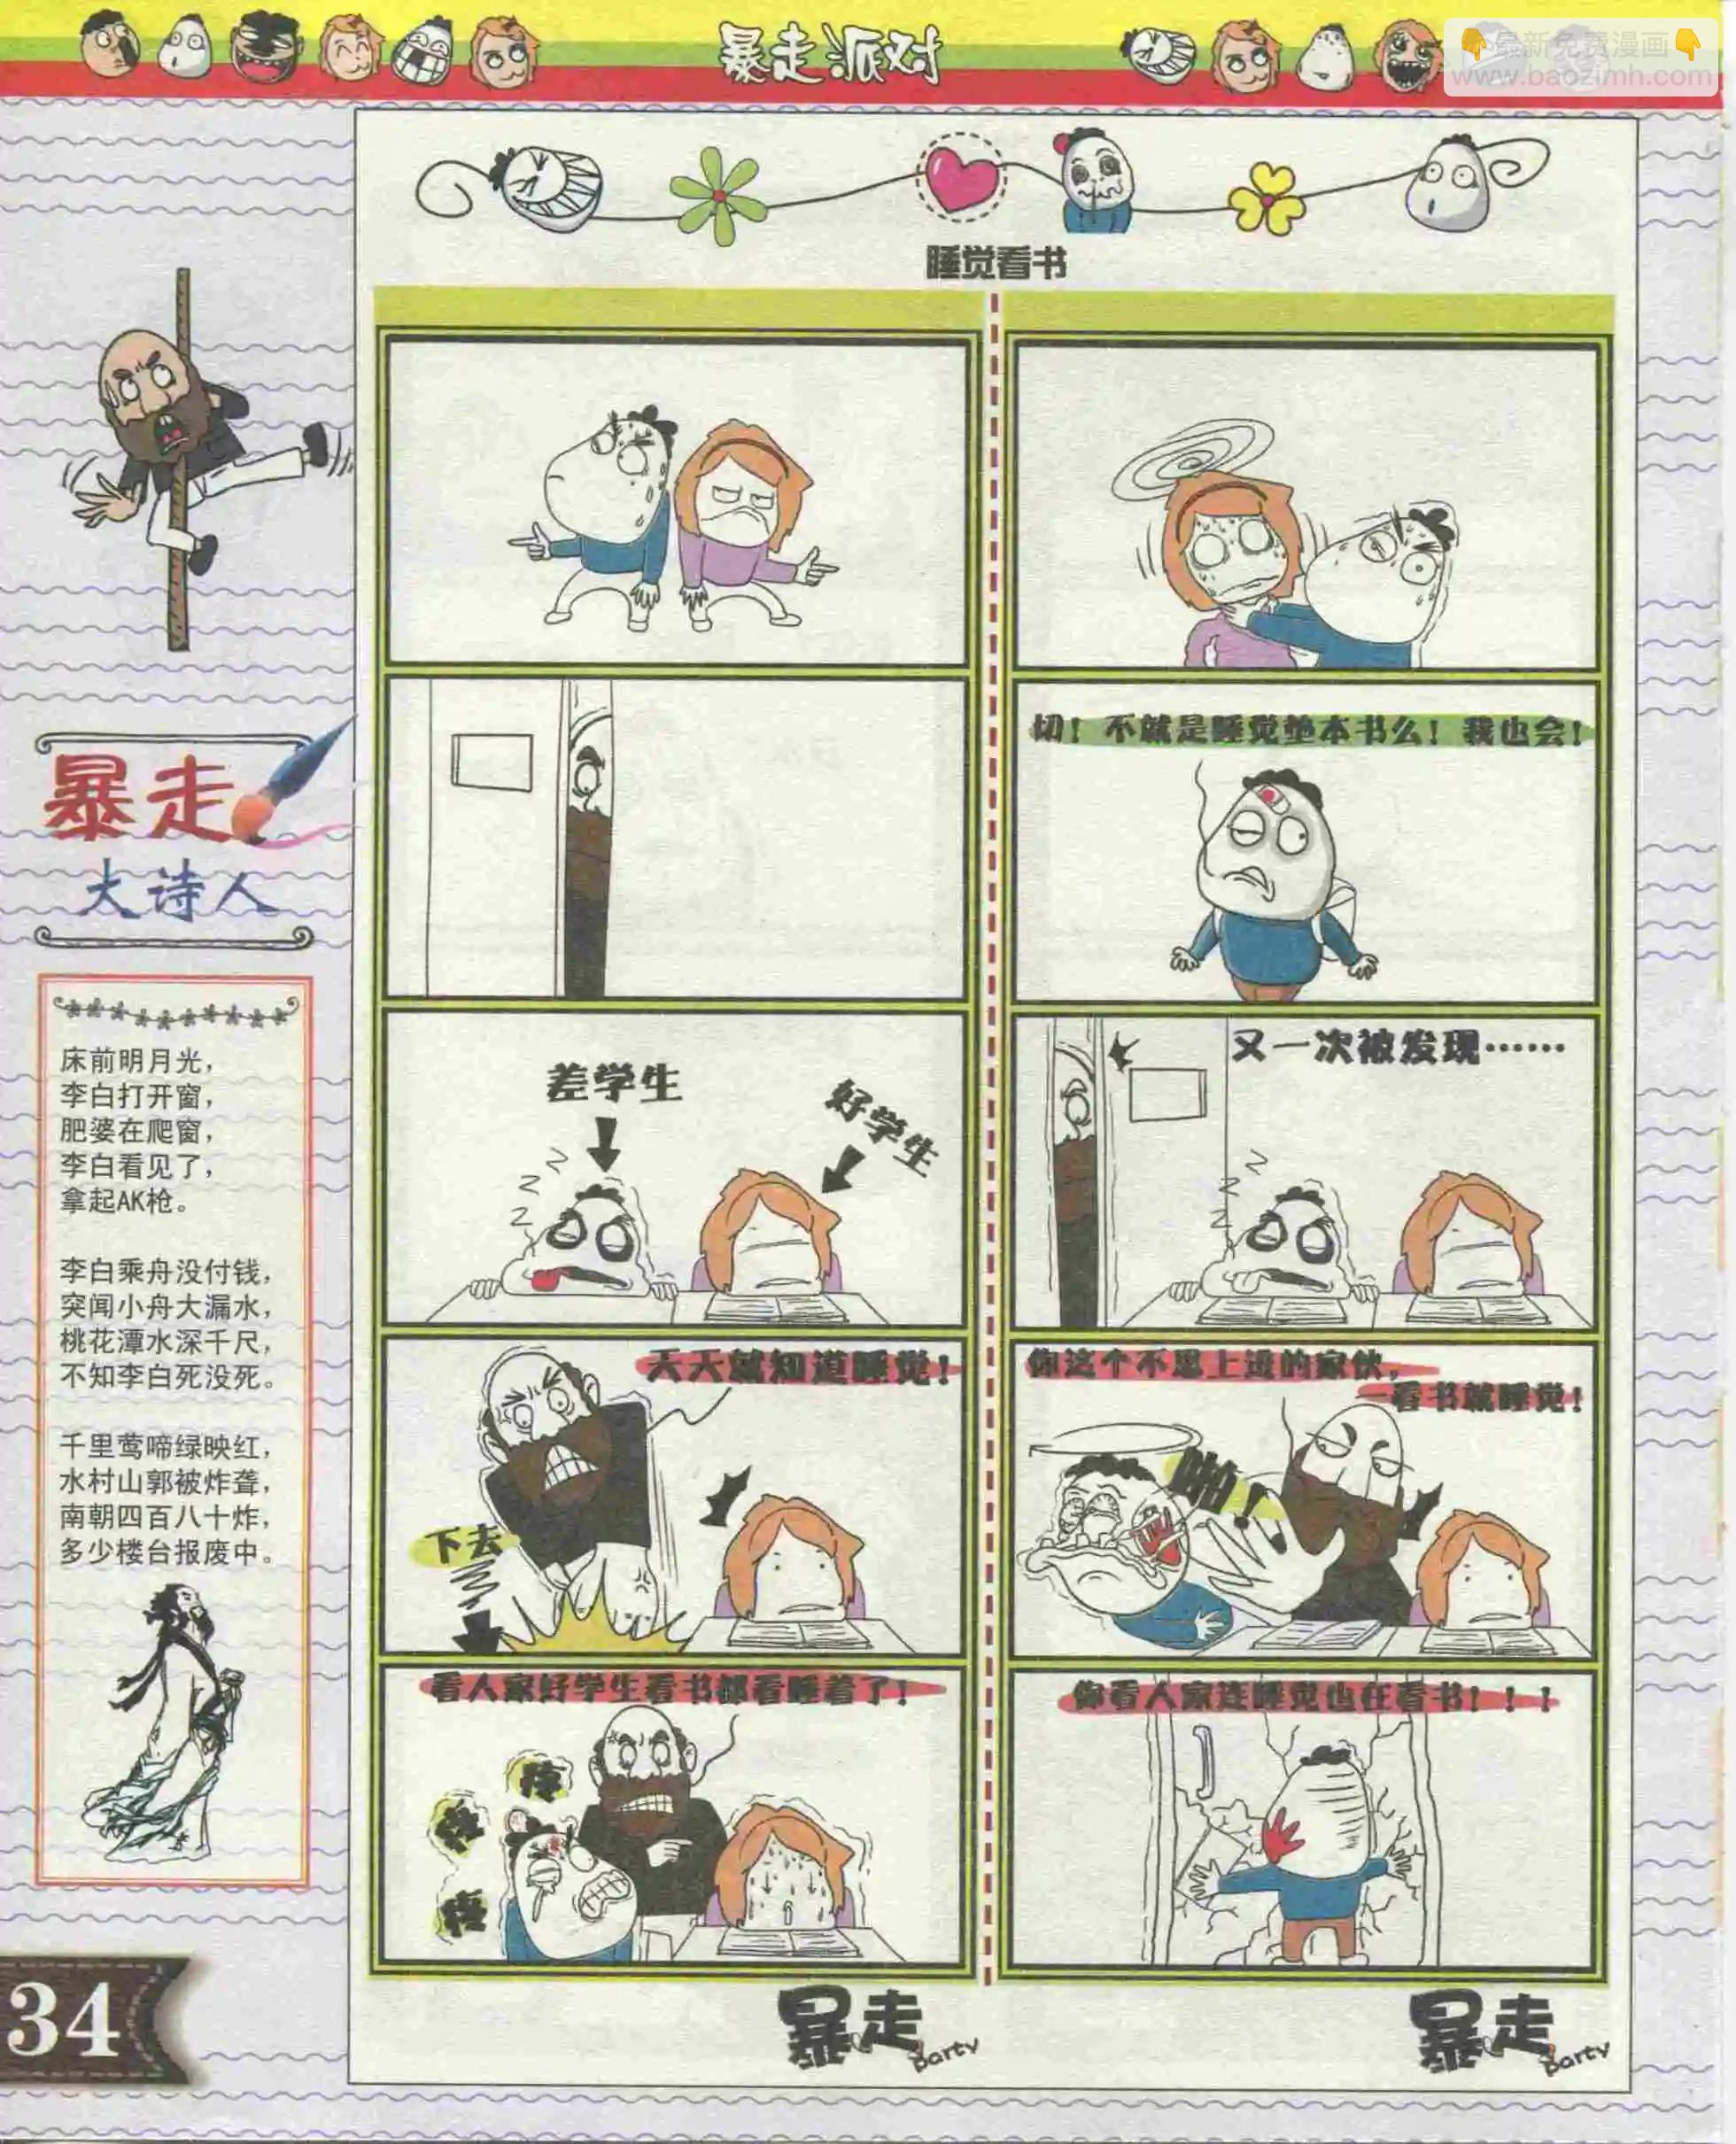 暴走派对
最新免费漫画
www.baozimh.com
睡觉看书
暴走
大诗人
床前明月光，
李白打开窗，
肥婆在爬窗，
李白看见了，
拿起AK枪。
李白乘舟没付钱，
突闻小舟大漏水，
桃花潭水深千尺，
不知李白死没死。
千里莺啼绿映红，
水村山郭被炸聋，
南朝四百八十炸，
多少楼台报废中。
34
差学生
好学生
天天就知道睡觉！
下去
看人家好学生看书都看睡着了！
暴走
party
切！不就是睡觉垫本书么！我也会！
又一次被发现……
你这个不思上进的家伙，
一看书就睡觉！
啪！
你看人家连睡觉也在看书！！！
暴走
party